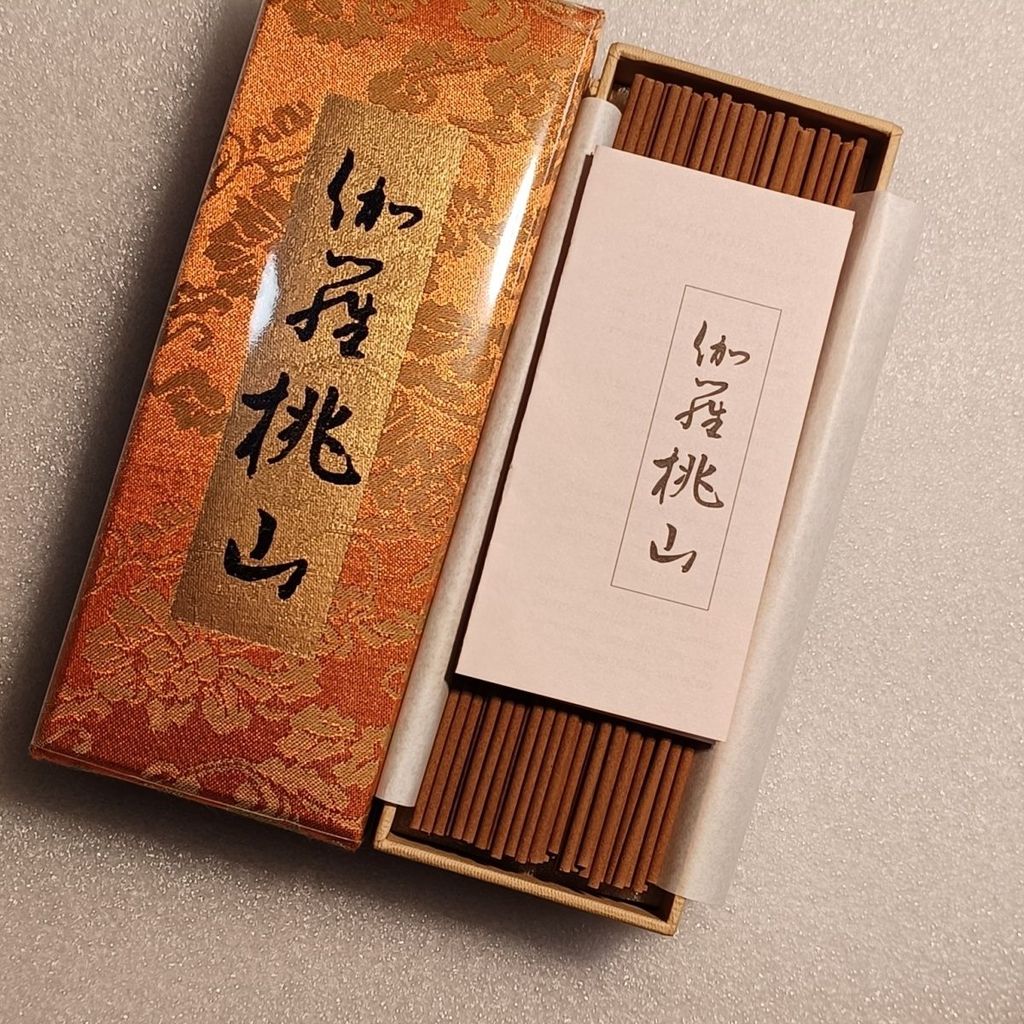 伽羅桃山
伽羅桃山